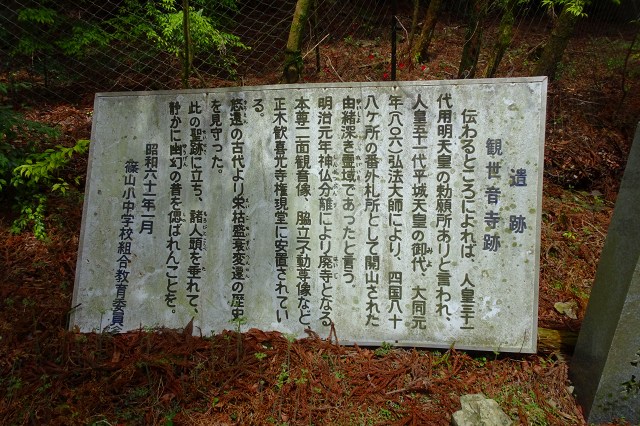 遺跡
観世音寺跡
伝わるところによれば、人皇三十一
代用明天皇の勅願所ありと言われ、
人皇五十一代平城天皇の御代、大同元
年(八〇六)弘法大師により、四国八十
八ケ所の番外札所として開山された
由緒深き霊域であったと言う。
明治元年神仏分離により廃寺となる。
本尊二面観音像、脇立不動尊像など、
正木歓喜光寺権現堂に安置されてい
る。
悠遠の古代より栄枯盛衰変遷の歴史
を見守った。
此の聖跡に立ち、諸人頭を垂れて、
静かに幽幻の昔を偲ばれんことを。
昭和六十二年一月
篠山小中学校組合教育委員会